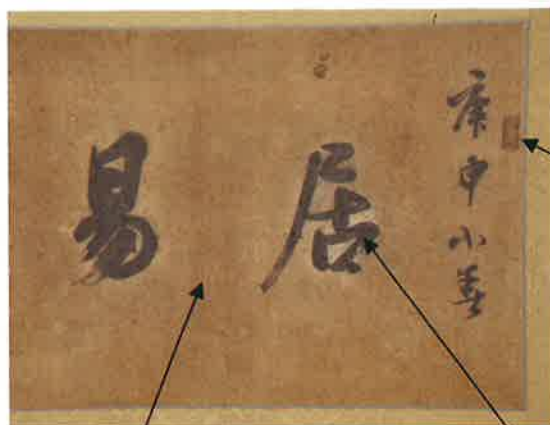 庚申小春
居易